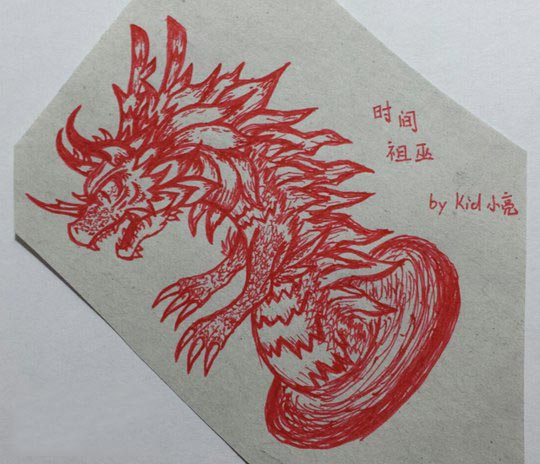 时间
祖巫
by Kid小亮